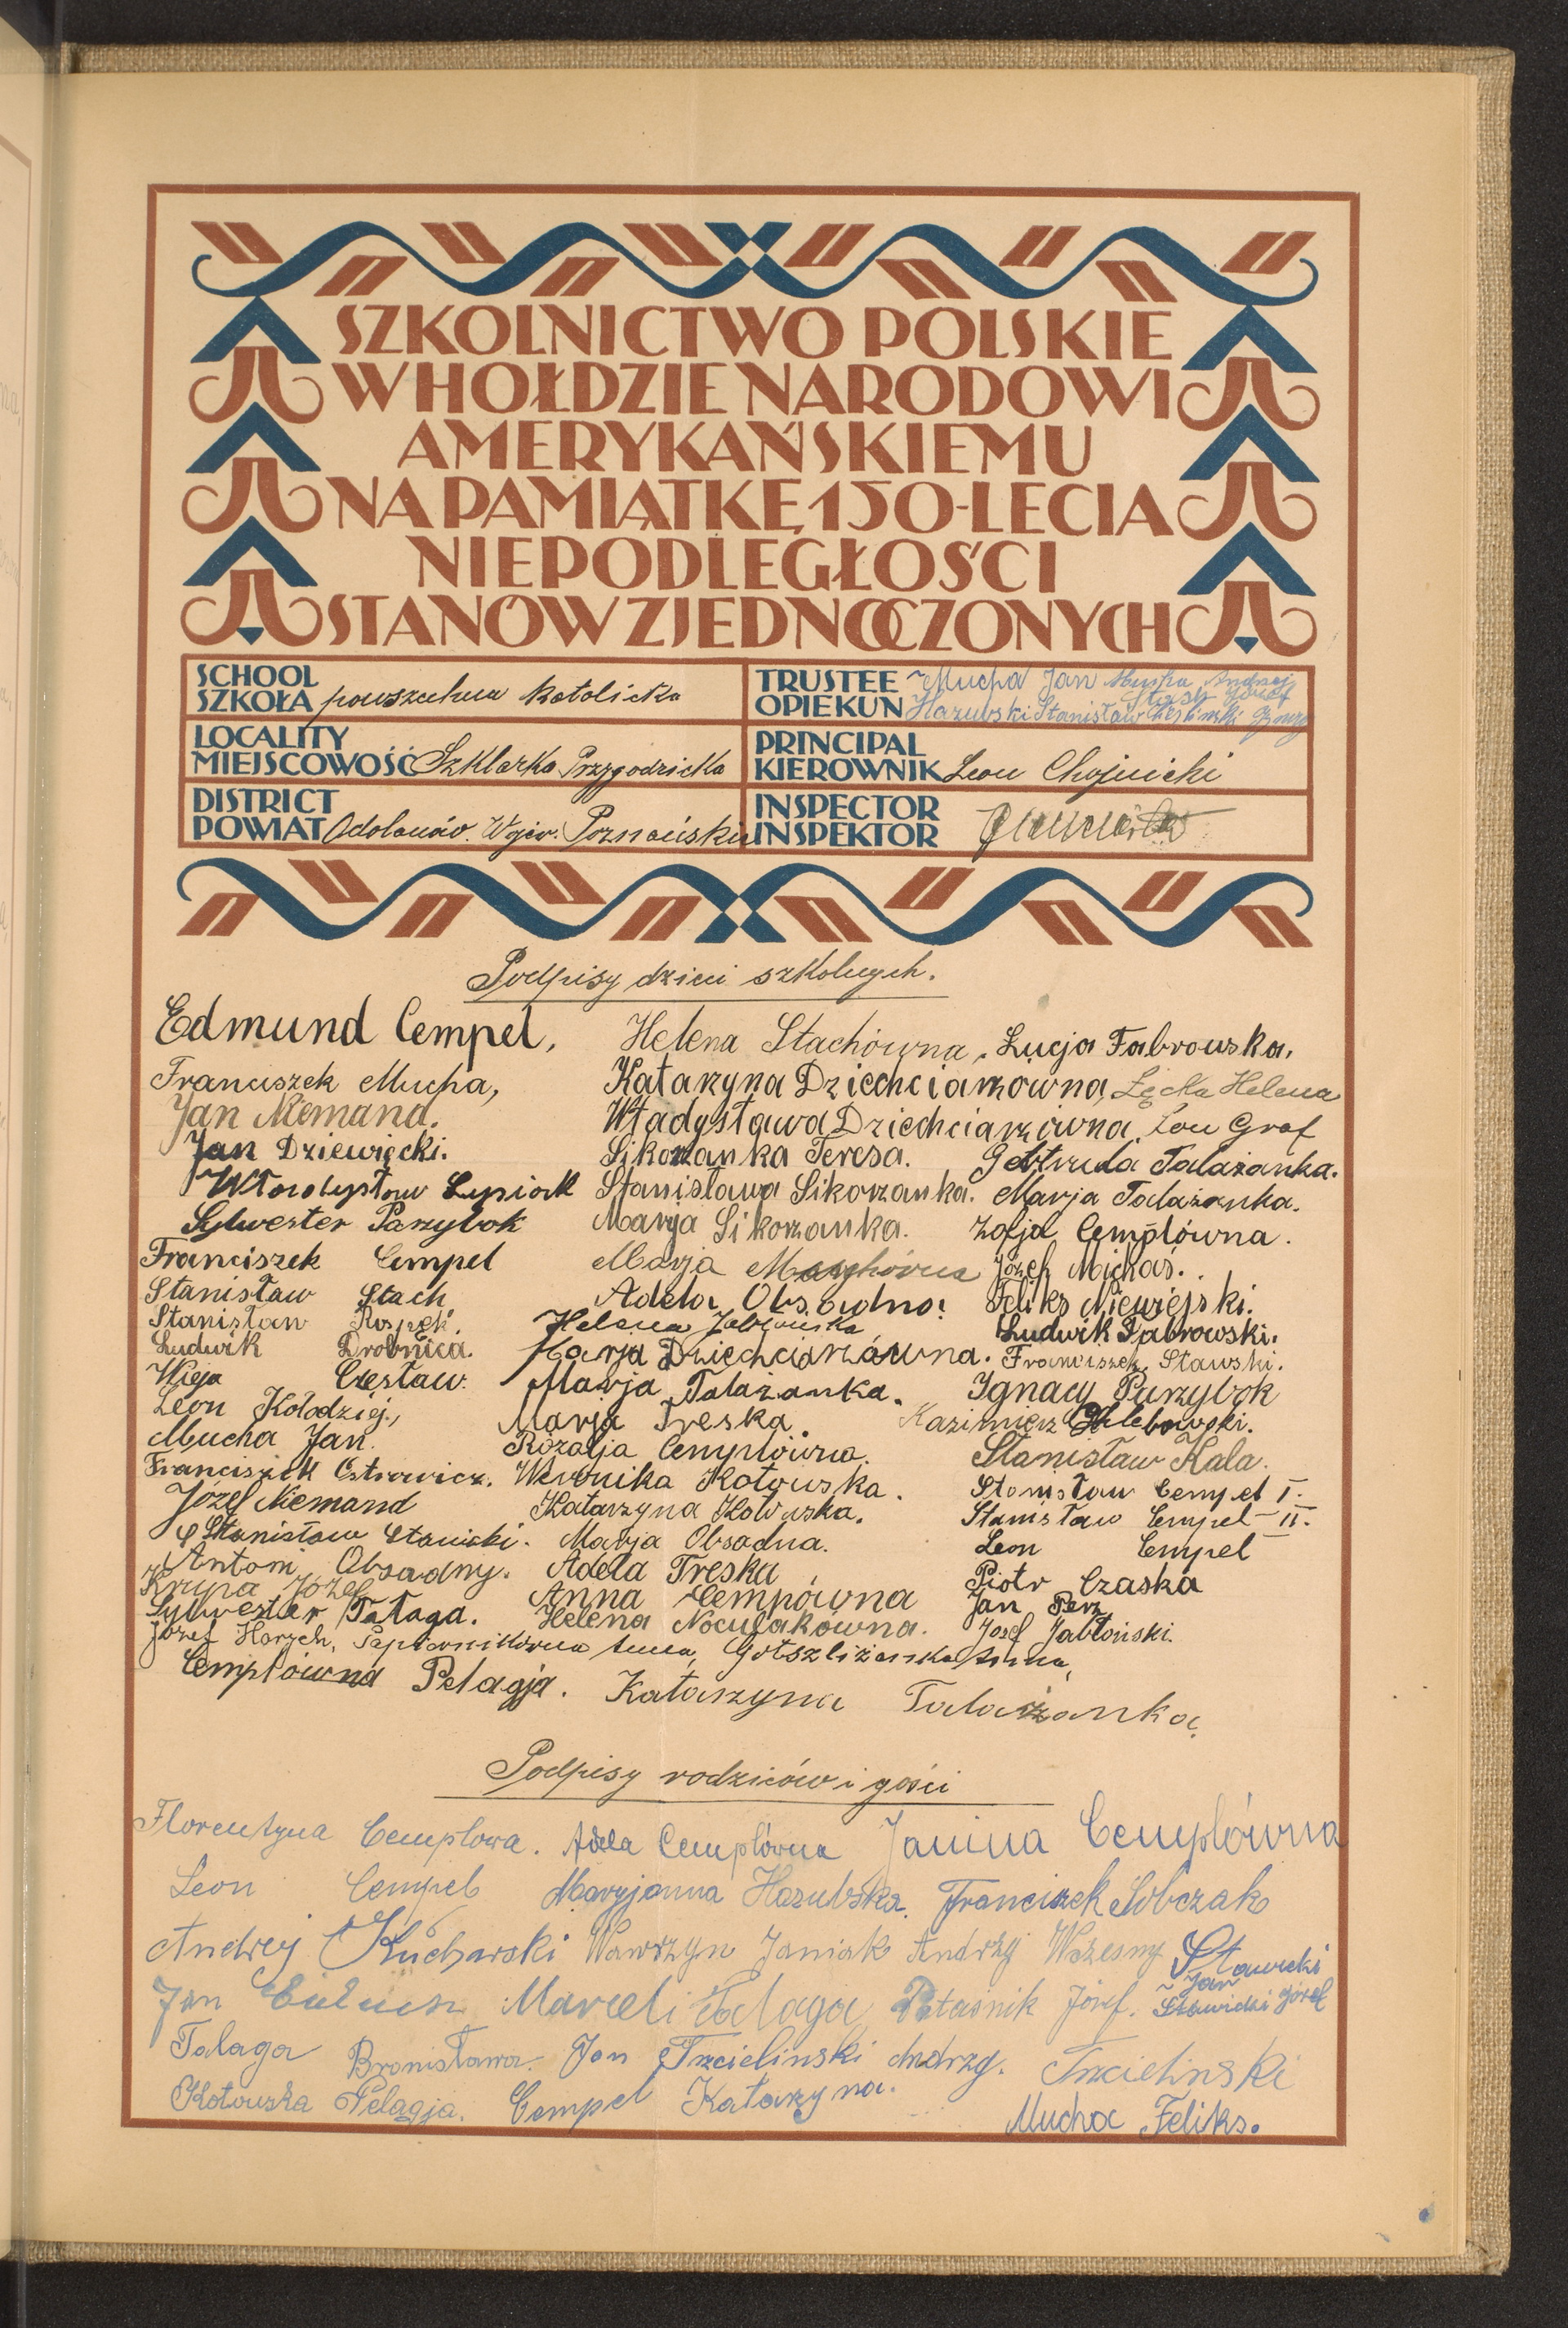 SZKOLNICTWO POLSKIE
W HOŁDZIE NARODOWI
AMERYKAŃSKIEMU
NA PAMIĄTKĘ 150-LECIA
NIEPODLEGŁOŚCI
STANÓW ZJEDNOCZONYCH
SCHOOL
SZKOŁA powszechna katolicka
TRUSTEE Mucha Jan Andrzej
OPIEKUN Hazubski Stanisław
LOCALITY
MIEJSCOWOŚĆ Szklarka Przygodzicka
PRINCIPAL
KIEROWNIK Leon Chojnicki
DISTRICT
POWIAT Odolanów. Wojew. Poznańskie
INSPECTOR
INSPEKTOR
Podpisy dzieci szkolnych.
Edmund Cempel, Helena Stachówna, Łucja Fabrowska,
Franciszek Mucha, Katarzyna Dziechciarzówna, Łęcka Helena
Jan Niemand. Władysława Dziechciarzówna, Lou Graf
Jan Dziewięcki. Sikorzanka Teresa. Gertruda Talażanka.
Władysław Łysiak Stanisława Sikorzanka. Marja Talażanka.
Sylwester Parzybok Marja Sikorzanka. Zofja Cemplówna.
Franciszek Cempel Marja Józef Michaś.
Stanisław Stach Adela Obsadna. Feliks Niewiejski.
Stanisław Rospęk. Helena Jabłońska Ludwik Dąbrowski.
Ludwik Drobnica. Marja Dziechciarzówna. Franciszek Stawski.
Wieja Czesław. Marja Talażanka. Ignacy Parzybok
Leon Kołodziej, Marja Treska Kazimierz Chlebowski.
Mucha Jan. Rozalja Cemplówna. Stanisław Kala.
Franciszek Ostrowicz. Weronika Kotowska. Stanisław Cempel I.
Józef Niemand Katarzyna Kotowska. Stanisław Cempel II.
Stanisław Stawicki. Marja Obsadna. Leon Cempel
Antoni Obsadny. Adela Treska Piotr Czaska
Krupa Józef Anna Cempówna Jan Perz
Sylwester Tałaga. Helena Noculakówna. Josef Jabłoński.
Józef Harych, Papiernikówna Anna, Gotszliżanka Anna,
Cemplówna Pelagja. Katarzyna Talażanka.
Podpisy rodziców i gości
Florentyna Cemplowa. Adela Cemplówna Janina Cemplówna
Leon Cempel Maryjanna Hazubska. Franciszek Sobczak
Andrzej Kucharski Wawrzyn Janiak Andrzy Wczesny Stawicki
Jan Marceli Talaga Ptaśnik Józef. Jan Stawicki Józef
Talaga Bronisława. Jan Trzcielinski Andrzy. Trzcielinski
Kotowska Pelagja. Cempel Katarzyna. Mucha Feliks.